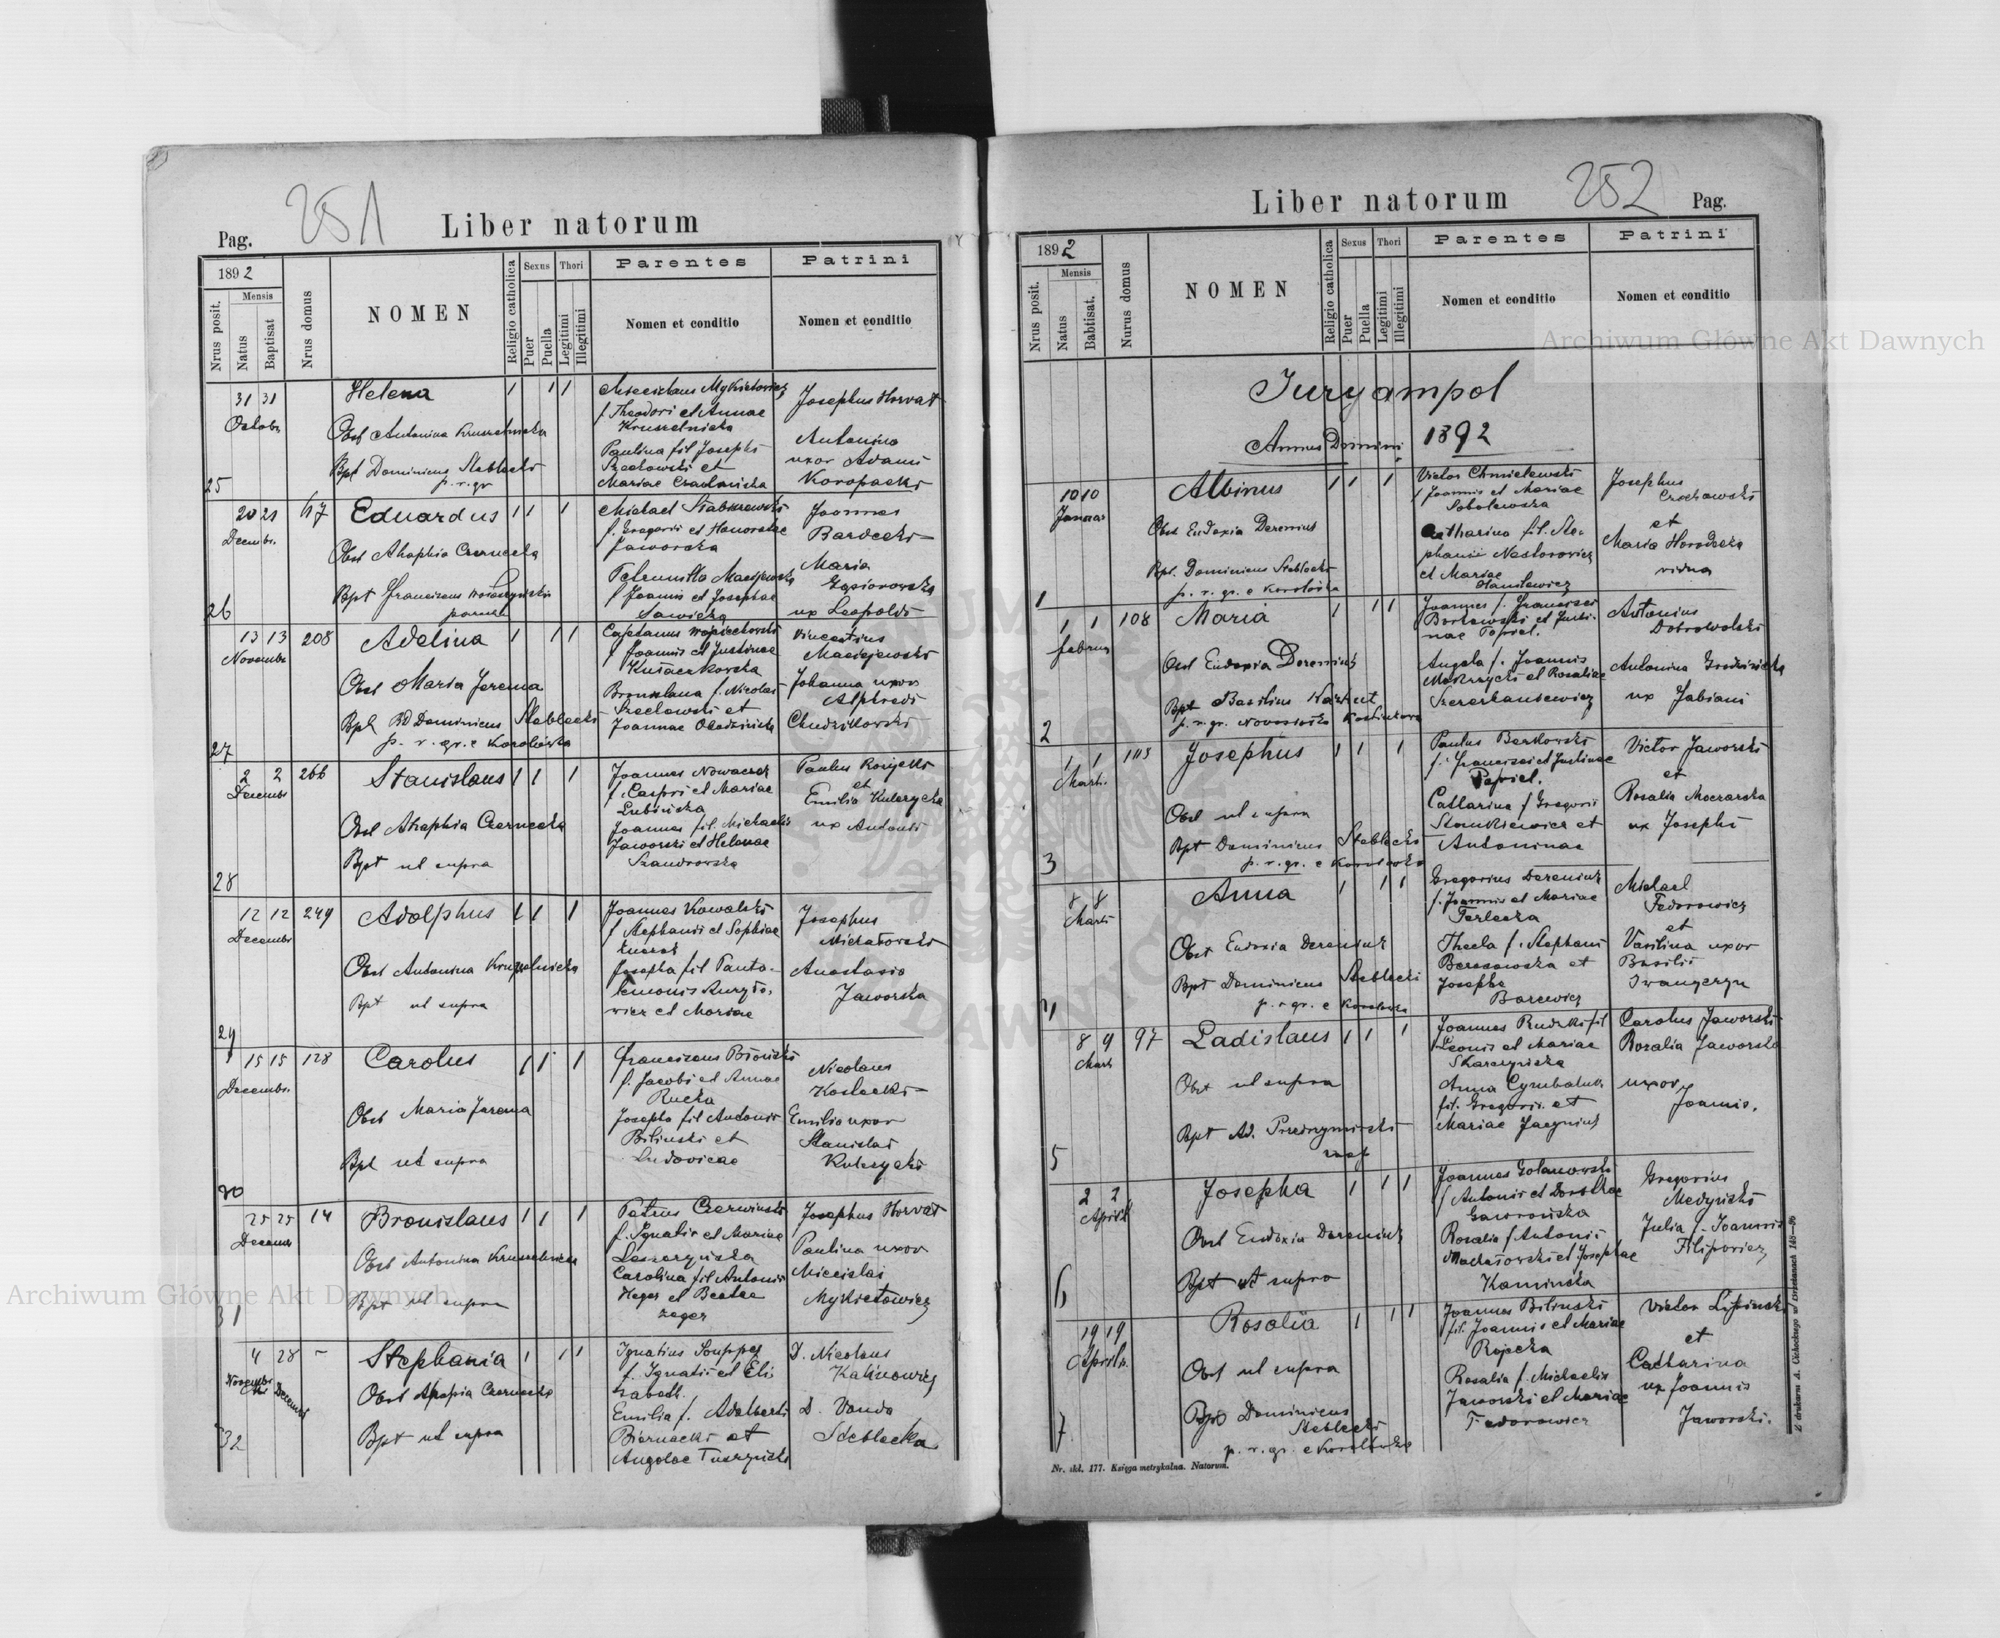 251
Liber natorum
Pag.
1892
Mensis
Nrus posit.
Natus
Baptisat
Nrus domus
NOMEN
Religio catholica
Sexus
Puer
Puella
Thori
Legitimi
Illegitimi
Parentes
Nomen et conditio
Patrini
Nomen et conditio
25
31 31
Octobr.
Helena
Obst Antonina Kruszelnicka
Bpt Dominicus Steblecki
p. r. gr
1 1 1
Mieceslaus Mykietowicz
f. Theodori et Annae
Kruszelnicka
Paulina fil Josephi
et
Mariae
Josephus Horvat
Antonina
uxor Adami
Koropacki
26
20 21
Decembr.
Eduardus
Obst Ahaphia Czernecka
Bpt Franciscus
1 1 1
Michael
f. Gregorii et Honoratae
Jaworska
Petrunella Maciejewska
f Joannis et Josephae
Sawicka
Joannes
Bardecki
Maria
Gąsiorowska
ux Leopoldi
27
13 13
Novembr
208
Adelina
Obst Maria Jarema
Bpt Dominicus Steblecki
p. r. gr. e Korolówka
1 1 1
Cajetanus Wojciechowski
f Joannis et Justinae
Bronislava f. Nicolai
et
Joannae
Vincentius
Maciejewski
Johanna uxor
Alphredi
28
2 2
Decembr
266
Stanislaus
Obst Ahaphia Czernecka
Bpt ut supra
1 1 1
Joannes Nowaczek
f. Caspri et Mariae
Lubińska
Joannes fil Michaelis
Jaworski et Helenae
Paulus
et
Emilia Kulczycka
ux Antonii
29
12 12
Decembr
249
Adolphus
Obst Antonina Kruszelnicka
Bpt ut supra
1 1 1
Joannes Kowalski
f Stephani et Sophiae
Josepha fil Panta-
lemonis
wicz et Mariae
Josephus
Michałowski
Anastasia
Jaworska
30
15 15
Decembr.
128
Carolus
Obst Maria Jarema
Bpt ut supra
1 1 1
Franciscus
f. Jacobi et Annae
Josepha fil Antonii
Bilinski et
Ludovicae
Nicolaus
Emilia uxor
Stanislai
Kulczycki
31
25 25
Decembr
14
Bronislaus
Obst Antonina Kruszelnicka
Bpt ut supra
1 1 1
Petrus Czerwinski
f. Ignatii et Mariae
Leszczyńska
Carolina fil Antonii
Heger et Beatae
Zeger
Josephus Horvat
Paulina uxor
Miecislai
Mykietowicz
32
4 28 –
Novembr
Decembr
Stephania
Obst Ahapia Czernecka
Bpt ut supra
1 1 1
Ignatius
f. Ignatii et Eli
zabeth.
Emilia f. Adalberti
Biernacki et
Angelae
D. Nicolaus
Kalinowicz
D. Vanda
Steblecka
252
Liber natorum
Pag.
1892
Mensis
Nrus posit.
Natus
Babtisat.
Nurus domus
NOMEN
Religio catholica
Sexus
Puer
Puella
Thori
Legitimi
Illegitimi
Parentes
Nomen et conditio
Patrini
Nomen et conditio
Juryampol
Annus Domini 1892
1
10 10
Januar
Albinus
Obst Eudoxia Dereniuk
Bpt. Dominicus Steblecki
p. r. gr. e Korolówka
1 1 1
Victor Chmielewski
f Joannis et Mariae
Sobolewska
Catharina fil. Ste-
phani Nestorowicz
et Mariae
Danilewicz
Josephus
et
Maria Horodecka
vidua
2
1 1
februar
108
Maria
Obst Eudoxia Dereniuk
Bpt Basilius
p. r. gr.
1 1 1
Joannes f. Francisci
Borkowski et Justi-
nae Papiel.
Angela f. Joannis
Mokrzycki et Rosaliae
Antonius
Dobrowolski
Antonina
ux Fabiani
3
1 1
Marti.
Josephus
Obst ut supra
Bpt Dominicus Steblecki
p. r. gr. e Korolówka
1 1 1
Paulus Borkowski
f. Francisci et Justinae
Papiel.
Catharina f Gregorii
Stankiewicz et
Antoninae
Victor Jaworski
et
Rosalia Moczarska
ux Josephi
4
8 8
Marti
Anna
Obst Eudoxia Dereniuk
Bpt Dominicus Steblecki
p. r. gr. e Korolówka
1 1 1
Gregorius Dereniuk
f. Joannis et Mariae
Terlecka
Thecla f. Stephani
et
Josepha
Barewicz
Michael
Fedorowicz
et
Vasilina uxor
Basilii
5
8 9
Marti
97
Ladislaus
Obst ut supra
Bpt Ad.
1 1 1
Joannes Rudzki fil
Leonis et Mariae
Skarzyńska
Anna Cymbaluk
fil. Gregorii et
Mariae
Carolus Jaworski
Rosalia Jaworska
uxor
Joannis.
6
2 2
Aprili
Josepha
Obst Eudoxia Dereniuk
Bpt ut supra
1 1 1
Joannes
f Antonii et Dorotheae
Gaworońska
Rosalia f Antonii
et Josephae
Kaminska
Gregorius
Medyński
Julia f. Joannis
Filipowicz
7
19 19
Aprilis.
Rosalia
Obst ut supra
Bpt Dominicus
Steblecki
p. r. gr. e Korolówka
1 1 1
Joannes Bilinski
fil. Joannis et Mariae
Rosalia f. Michaelis
Jaworski et Mariae
Fedorowicz
Victor Lipinski
et
Catharina
ux Joannis
Jaworski.
Nr. skł. 177. Księga metrykalna. Natorum.
Archiwum Główne Akt Dawnych
Archiwum Główne Akt Dawnych